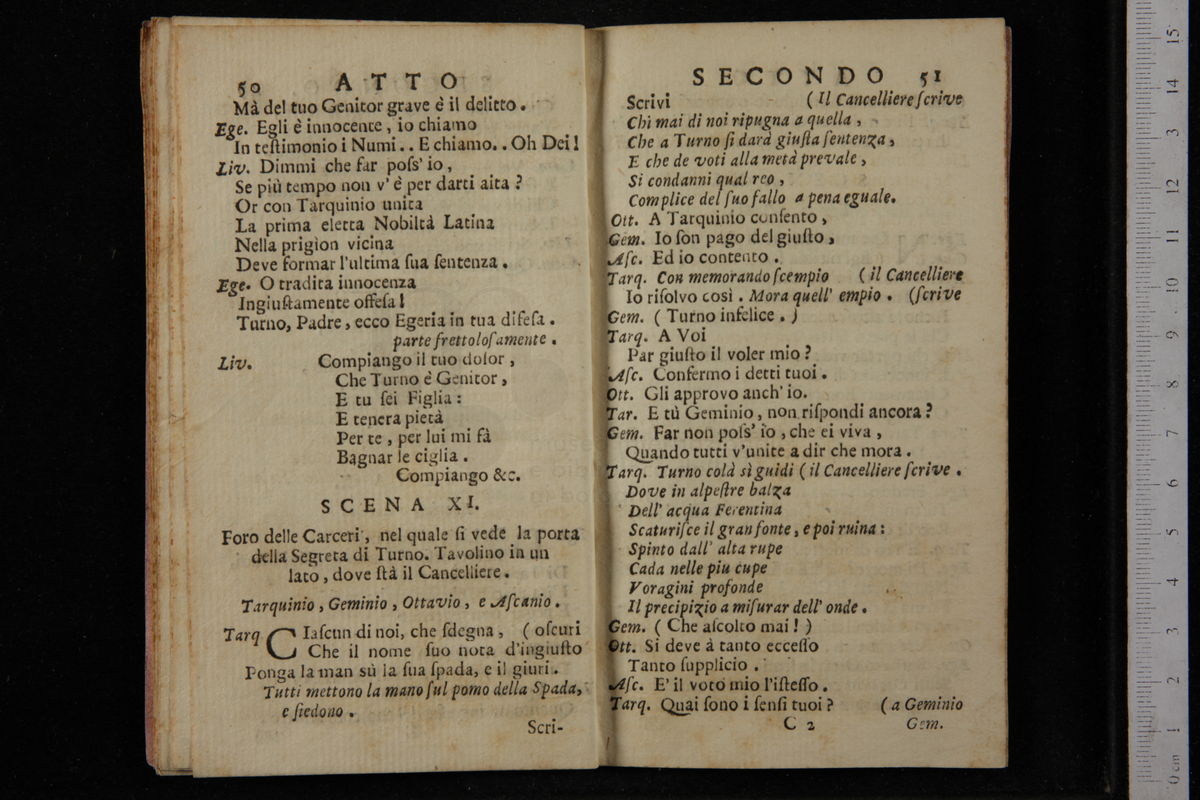 50 ATTO
Mà del tuo Genitor grave è il delitto.
Ege. Egli è innocente, io chiamo
In teſtimonio i Numi.. E chiamo.. Oh Dei!
Liv. Dimmi che far poſs' io,
Se più tempo non v' è per darti aita?
Or con Tarquinio unita
La prima eletta Nobiltà Latina
Nella prigion vicina
Deve formar l'ultima ſua ſentenza.
Ege. O tradita innocenza
Ingiuſtamente offeſa!
Turno, Padre, ecco Egeria in tua difeſa.
parte frettoloſamente.
Liv. Compiango il tuo dolor,
Che Turno è Genitor,
E tu ſei Figlia:
E tenera pietà
Per te, per lui mi fà
Bagnar le ciglia.
Compiango &c.
SCENA XI.
Foro delle Carceri, nel quale ſi vede la porta
della Segreta di Turno. Tavolino in un
lato, dove ſtà il Cancelliere.
Tarquinio, Geminio, Ottavio, e Aſcanio.
Tarq CIaſcun di noi, che ſdegna, (oſcuri
Che il nome ſuo nota d'ingiuſto
Ponga la man sù la ſua ſpada, e il giuri.
Tutti mettono la mano ſul pomo della Spada,
e ſiedono.
Scri-
SECONDO 51
Scrivi (Il Cancelliere ſcrive
Chì mai di noi ripugna a quella,
Che a Turno ſi darà giuſta ſentenza,
E che de voti alla metà prevale,
Si condanni qual reo,
Complice del ſuo fallo a pena eguale.
Ott. A Tarquinio conſento,
Gem. Io ſon pago del giuſto,
Aſc. Ed io contento.
Tarq. Con memorando ſcempio (il Cancelliere
Io riſolvo così. Mora quell' empio. (ſcrive
Gem. (Turno infelice.)
Tarq. A Voi
Par giuſto il voler mio?
Aſc. Confermo i detti tuoi.
Ott. Gli approvo anch' io.
Tar. E tù Geminio, non riſpondi ancora?
Gem. Far non poſs' io, che ei viva,
Quando tutti v'unite a dir che mora.
Tarq. Turno colà sì guidi (il Cancelliere ſcrive.
Dove in alpeſtre balza
Dell' acqua Ferentina
Scaturiſce il gran fonte, e poi ruina:
Spinto dall' alta rupe
Cada nelle piu cupe
Voragini profonde
Il precipizio a miſurar dell' onde.
Gem. (Che aſcolto mai!)
Ott. Si deve à tanto ecceſſo
Tanto ſupplicio.
Aſc. E' il voto mio l'iſteſſo.
Tarq. Quai ſono i ſenſi tuoi? (a Geminio
C 2 Gem.